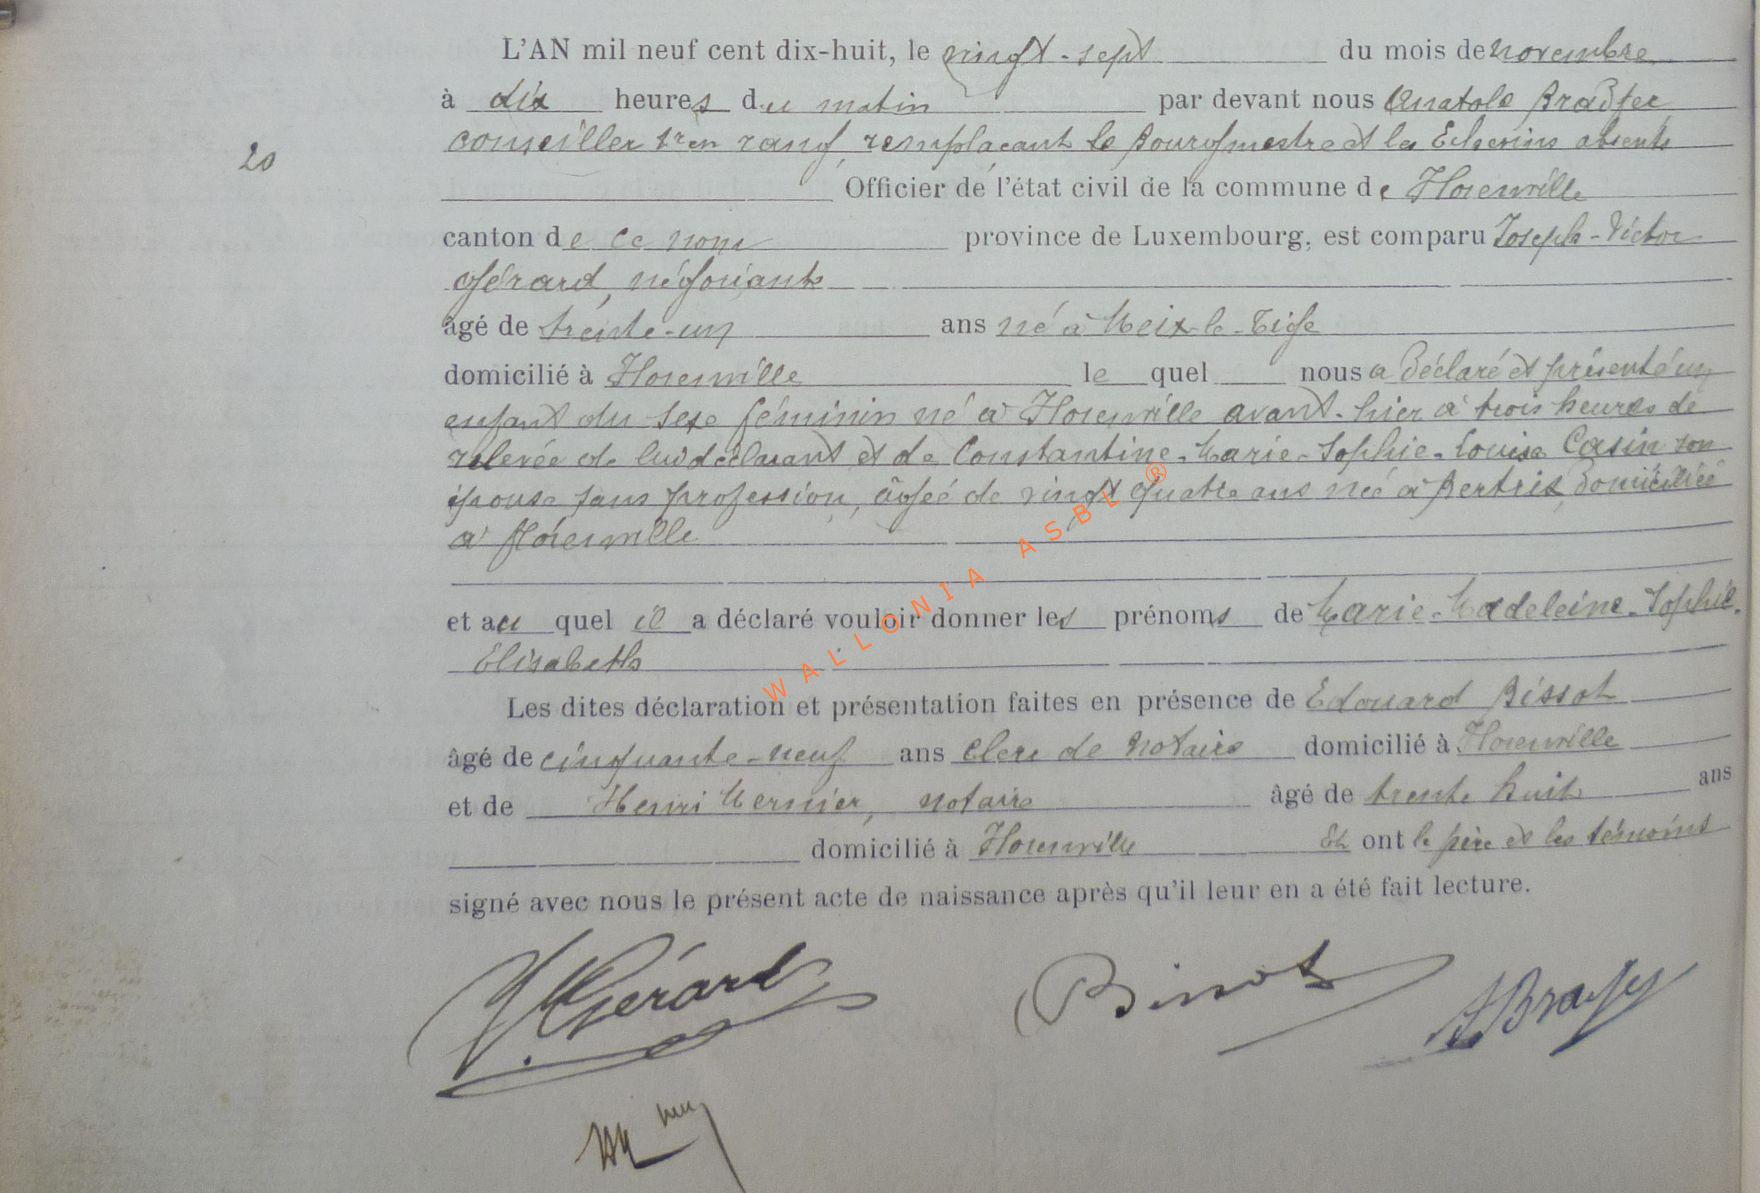 L'AN mil neuf cent dix-huit, le vingt-sept du mois de novembre
à dix heures du matin par devant nous Anatole Bradfer
conseiller 1er en rang, remplaçant le Bourgmestre et les Echevins absents
20
Officier de l'état civil de la commune de Florenville
canton de ce nom province de Luxembourg, est comparu Joseph-Victor
Gérard, négociant
âgé de trente-un ans né à Meix-le-Tige
domicilié à Florenville le quel nous a déclaré et présenté un
enfant du sexe féminin né à Florenville avant-hier à trois heures de
relevée de lui déclarant et de Constantine-Marie-Sophie-Louise Casin son
épouse sans profession, âgée de vingt quatre ans née à Bertrix, domiciliée
à Florenville
et au quel il a déclaré vouloir donner les prénoms de Marie-Madeleine-Sophie-
Elisabeth
Les dites déclaration et présentation faites en présence de Edouard Bissot
âgé de cinquante-neuf ans clerc de notaire domicilié à Florenville
et de Henri Mernier, notaire âgé de trente huit ans
domicilié à Florenville Et ont le père et les témoins
signé avec nous le présent acte de naissance après qu'il leur en a été fait lecture.
Gérard Bissot ABradfer
WALLONIA ASBL ®